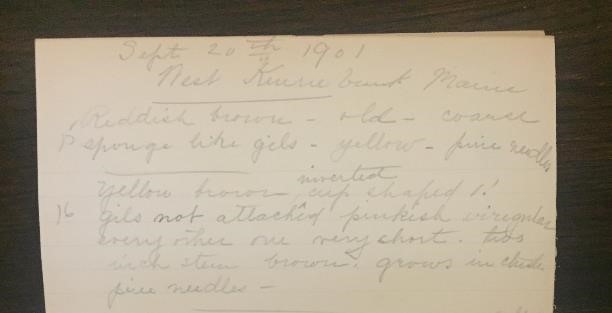 Sept 20th 1901
West Kennebunk Maine
Reddish brown - old - coarse
sponge like gils - yellow - pine needles
Yellow brown, inverted cup shaped
16 gils not attached pinkish irregular
every other one very short. two
inch stem brown. grows in
pine needles -